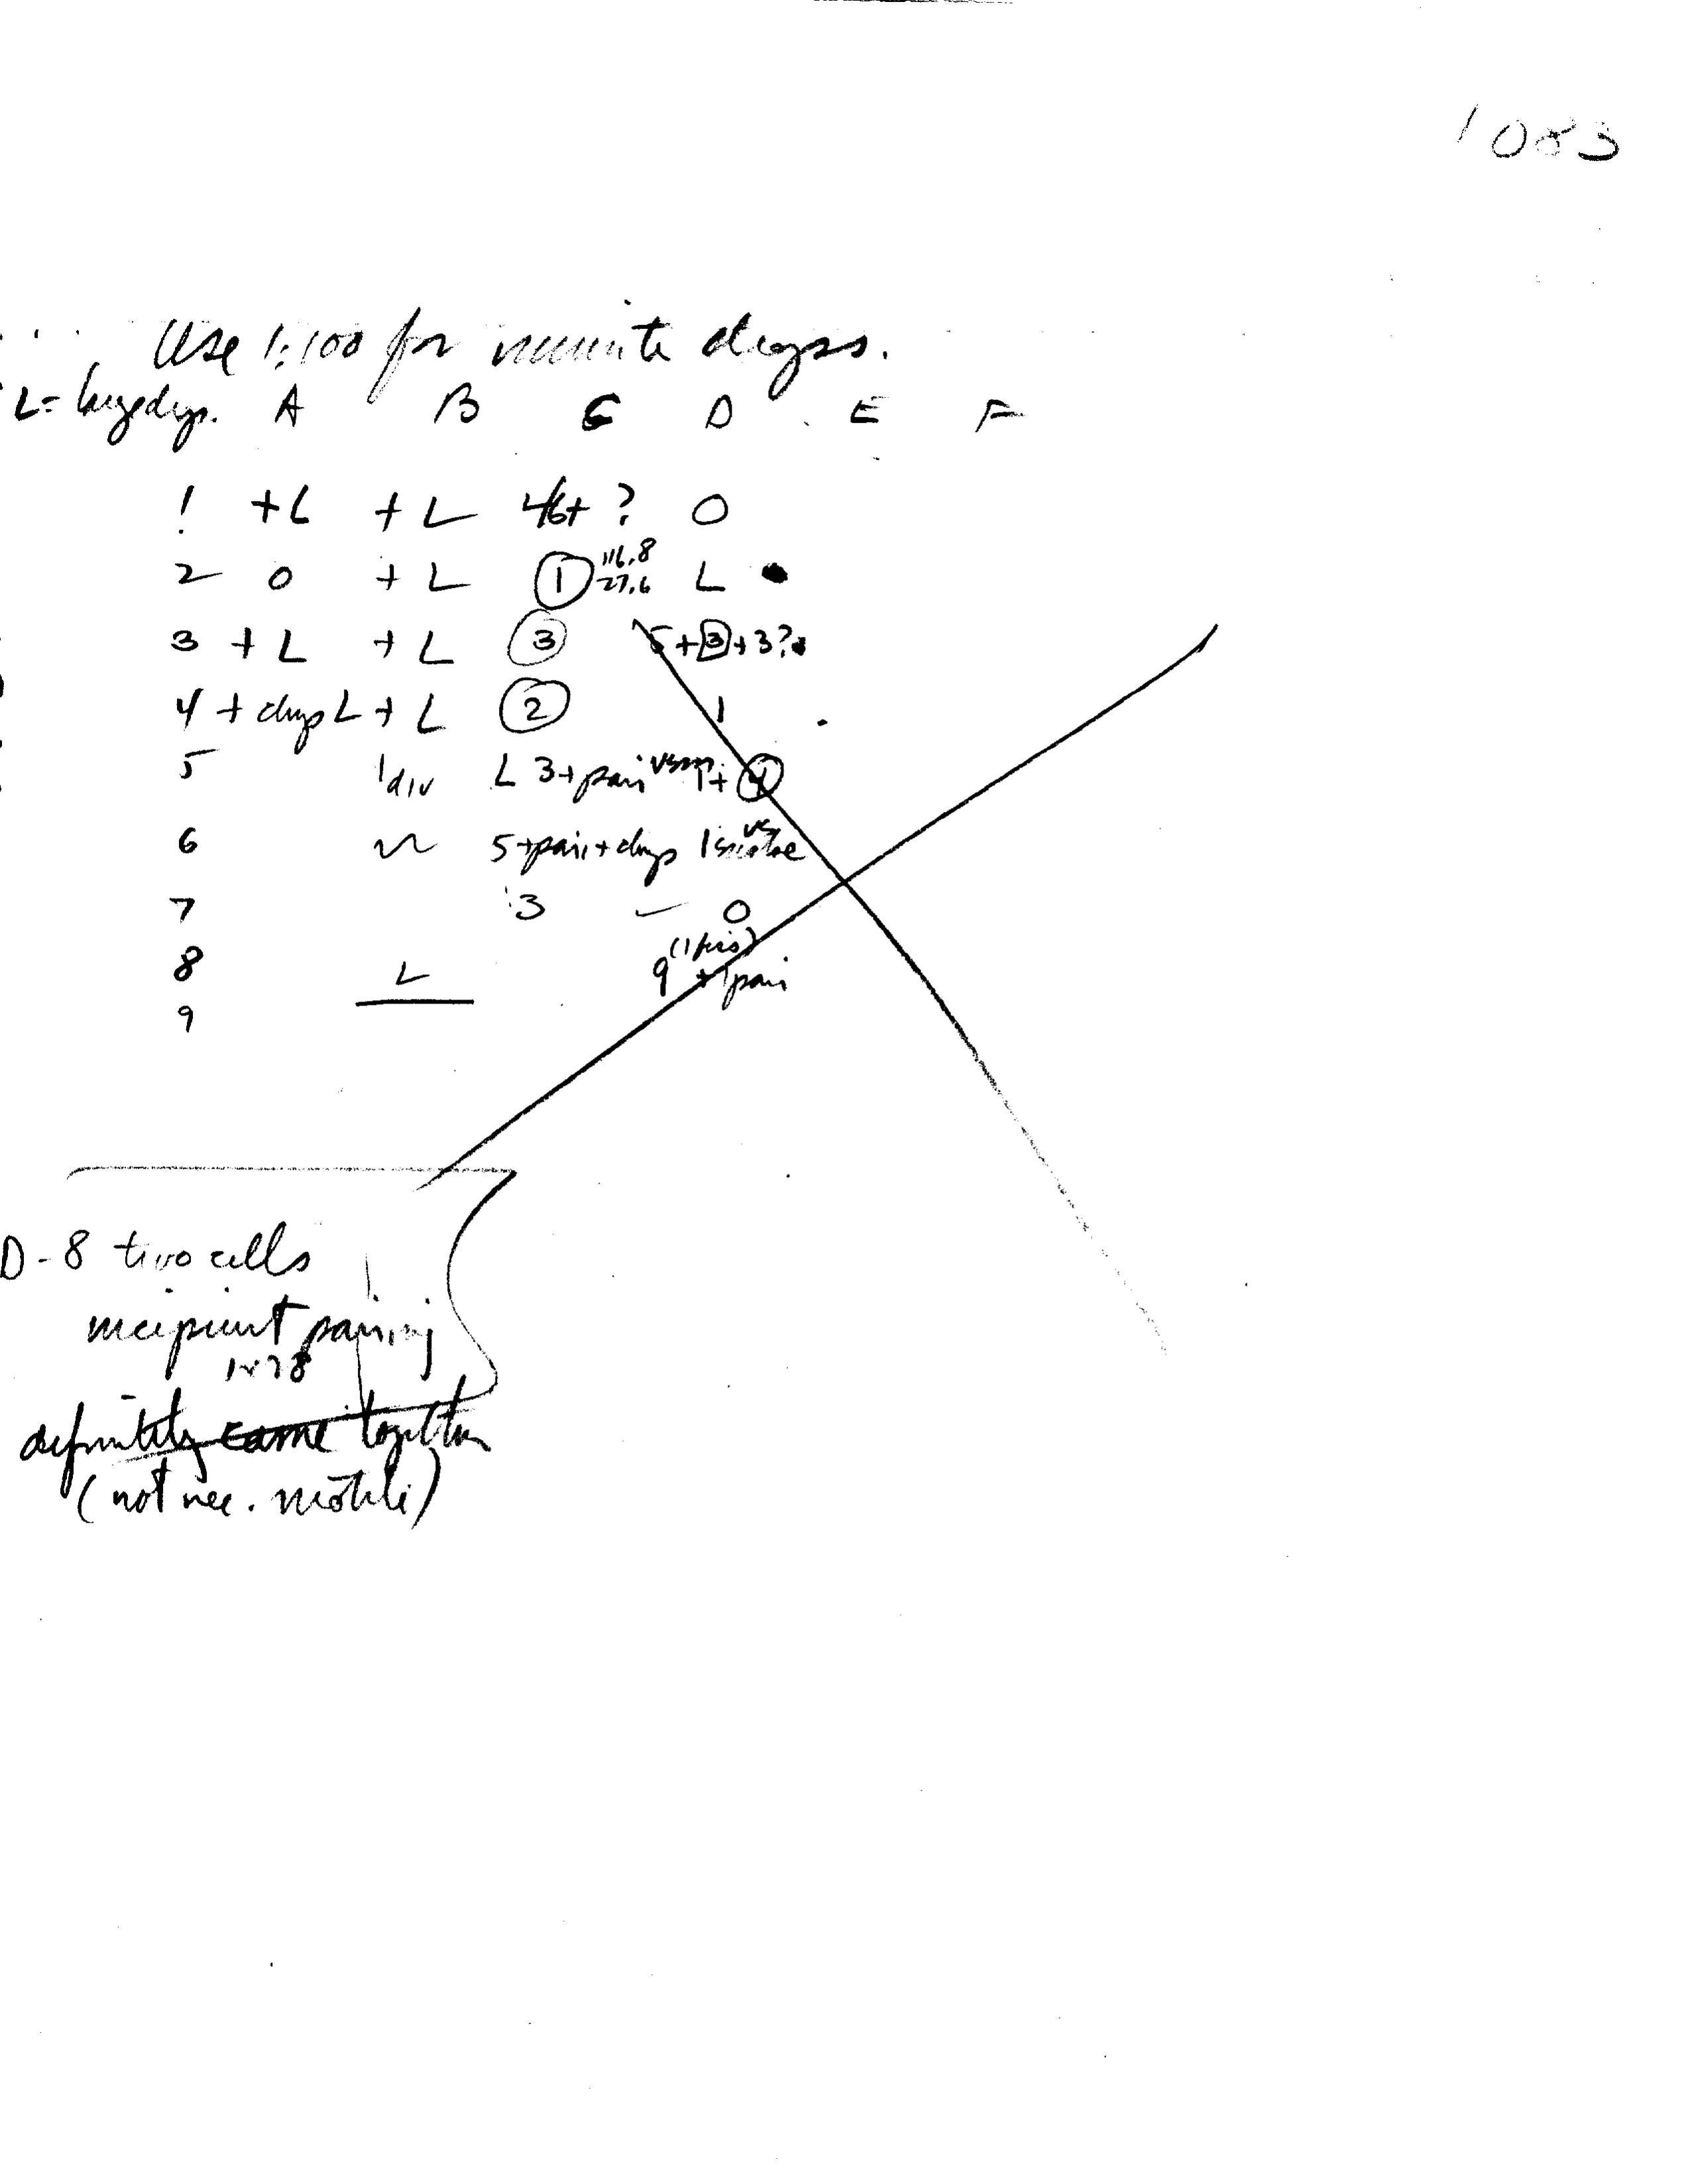 1083
Use 1:100 for minute drops.
L = large drop. A B C D E F
1 +L +L 4/6+ ? 0
2 0 +L 1 116.8 27.6 L
3 +L +L 3 5+3+3?
4 + drop L +L 2 1
5 1 div L 3+pair 1+
6 5+pair+drop 1
7 3 – 0
8 L 9 +1 pair
9
D-8 two cells
incipient pairing
definitely came together
(not nec. motile)